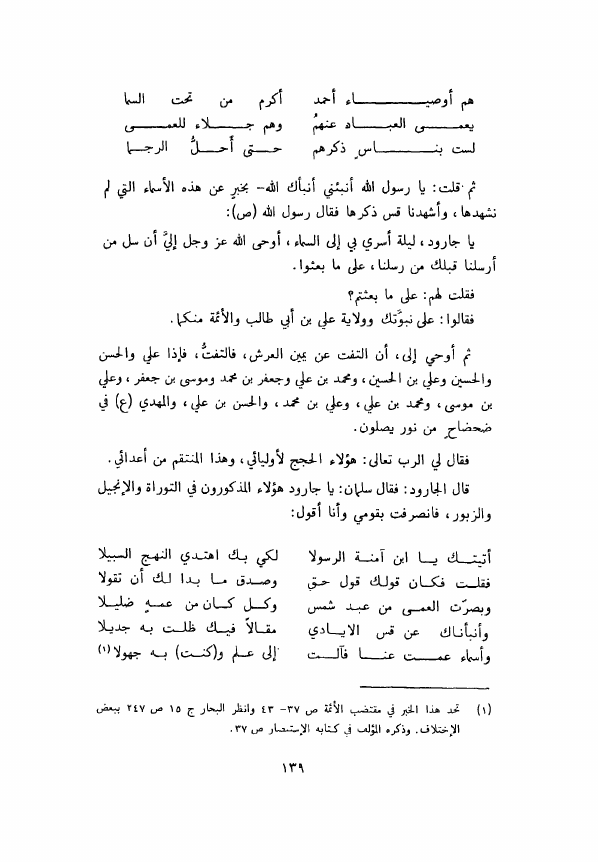 هم أوصياء أحمد أكرم من تحت السما
يعمى العباد عنهمُ وهم جلاء للعمى
لست بناسٍ ذكرهم حتى أَحلُّ الرجما
ثم قلت: يا رسول الله أنبئني أنبأك الله- بخبرٍ عن هذه الأسماء التي لم
نشهدها، وأشهدنا قس ذكرها فقال رسول الله (ص):
يا جارود، ليلة أسري بي إلى السماء، أوحى الله عز وجل إليَّ أن سل من
أرسلنا قبلك من رسلنا، على ما بعثوا.
فقلت لهم: على ما بعثتم؟
فقالوا: على نبوَّتك وولاية علي بن أبي طالب والأئمة منكما.
ثم أوحي إلى، أن التفت عن يمين العرش، فالتفتُّ، فإذا علي والحسن
والحسين وعلي بن الحسين، ومحمد بن علي وجعفر بن محمد وموسى بن جعفر، وعلي
بن موسى، ومحمد بن علي، وعلي بن محمد، والحسن بن علي، والمهدي (ع) في
ضحضاحٍ من نور يصلون.
فقال لي الرب تعالى: هؤلاء الحجج لأوليائي، وهذا المنتقم من أعدائي.
قال الجارود: فقال سلمان: يا جارود هؤلاء المذكورون في التوراة والإنجيل
والزبور، فانصرفت بقومي وأنا أقول:
أتيتك يا ابن آمنة الرسولا لكي بك اهتدي النهج السبيلا
فقلت فكان قولك قول حقٍ وصدق ما بدا لك أن تقولا
وبصرّت العمى من عبد شمس وكل كان من عمهٍ ضليلا
وأنبأناك عن قس الايادي مقالاً فيك ظلت به جديلا
وأسماء عمت عنا فآلت إلى علم و(كنت) به جهولا(١)
(١) تجد هذا الخبر في مقتضب الأئمة ص ٣٧- ٤٣ وانظر البحار ج ١٥ ص ٢٤٧ ببعض
الإختلاف. وذكره المؤلف في كتابه الإستنصار ص ٣٧.
١٣٩